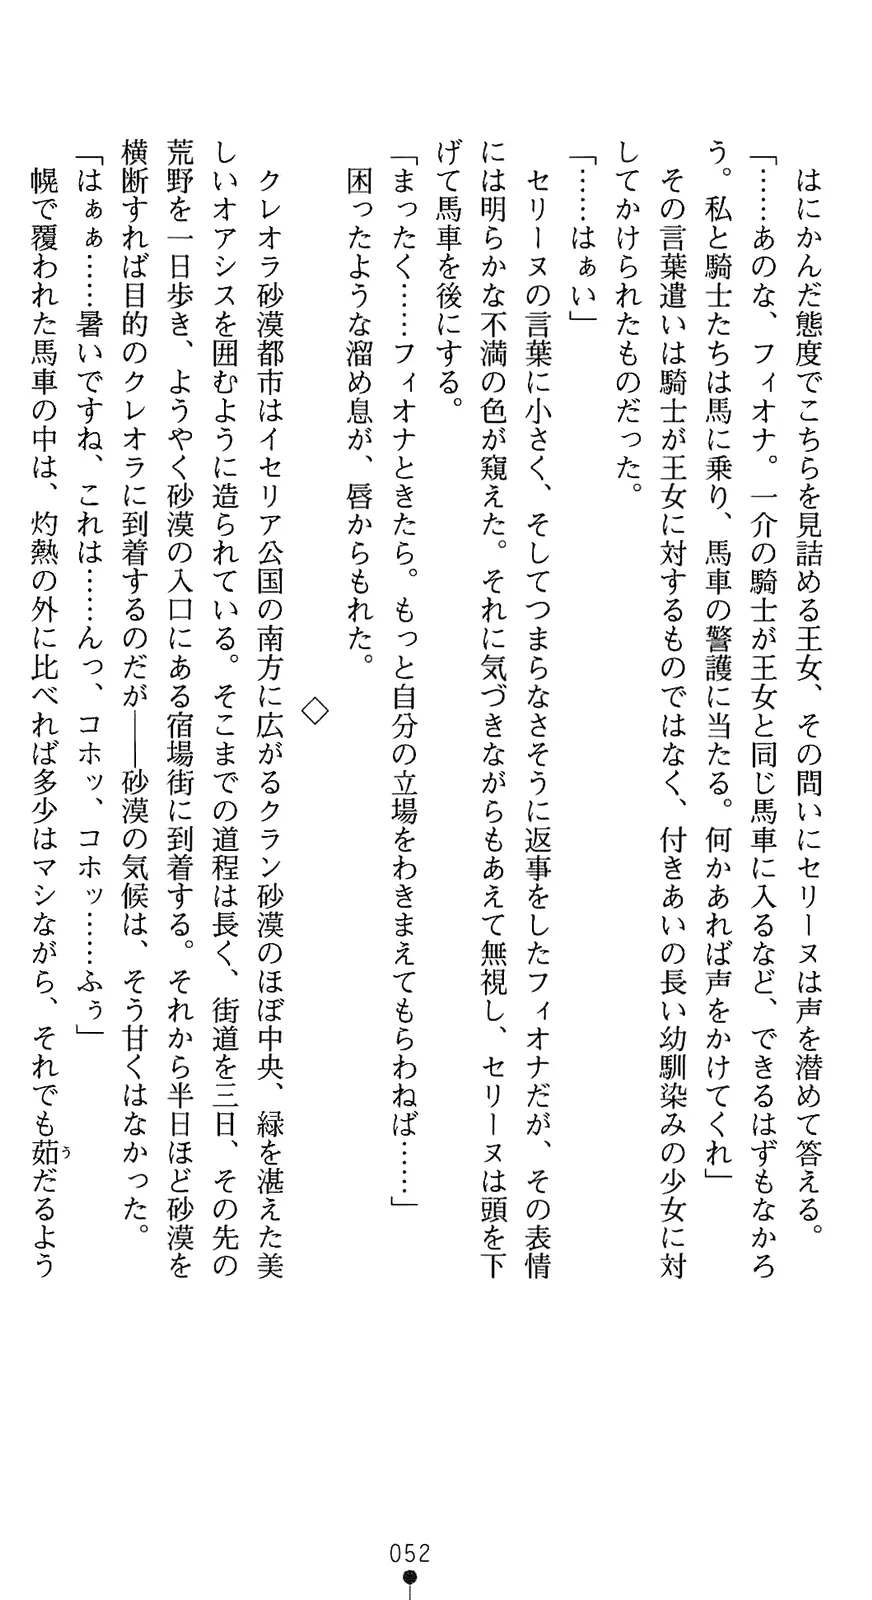 はにかんだ態度でこちらを見詰める王女、その問いにセリーヌは声を潜めて答える。
「……あのな、フィオナ。一介の騎士が王女と同じ馬車に入るなど、できるはずもなかろ
う。私と騎士たちは馬に乗り、馬車の警護に当たる。何かあれば声をかけてくれ」
その言葉遣いは騎士が王女に対するものではなく、付きあいの長い幼馴染みの少女に対
してかけられたものだった。
「……はぁい」
セリーヌの言葉に小さく、そしてつまらなさそうに返事をしたフィオナだが、その表情
には明らかな不満の色が窺えた。それに気づきながらもあえて無視し、セリーヌは頭を下
げて馬車を後にする。
「まったく……フィオナときたら。もっと自分の立場をわきまえてもらわねば……」
困ったような溜め息が、唇からもれた。
◇
クレオラ砂漠都市はイセリア公国の南方に広がるクラン砂漠のほぼ中央、緑を湛えた美
しいオアシスを囲むように造られている。そこまでの道程は長く、街道を三日、その先の
荒野を一日歩き、ようやく砂漠の入口にある宿場街に到着する。それから半日ほど砂漠を
横断すれば目的のクレオラに到着するのだが――砂漠の気候は、そう甘くはなかった。
「はぁぁ……暑いですね、これは……んっ、コホッ、コホッ……ふぅ」
幌で覆われた馬車の中は、灼熱の外に比べれば多少はマシながら、それでも茹だるよう
う
052